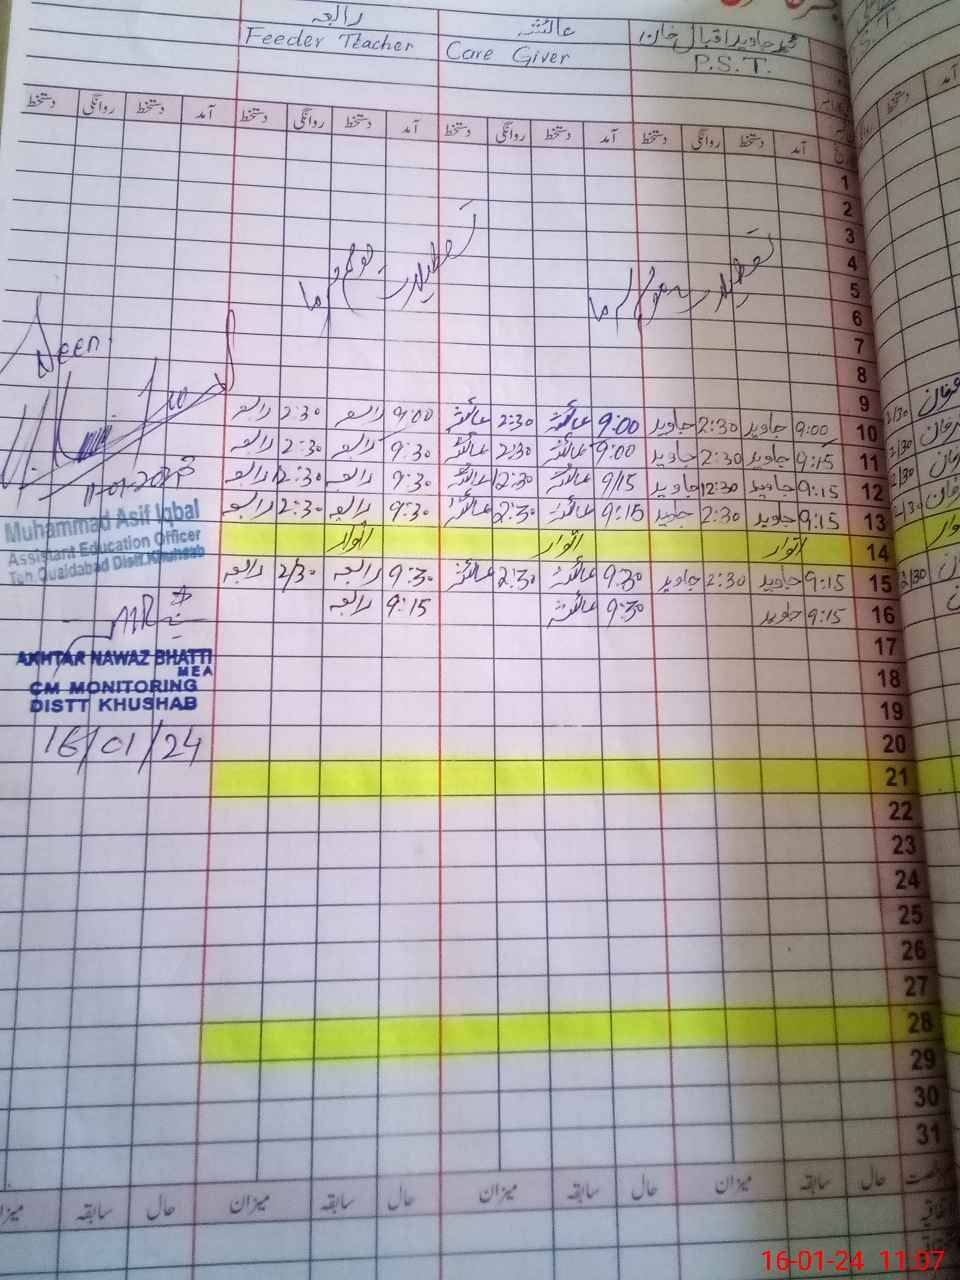 محمد جاوید اقبال خان عائشہ رابعہ
P.S.T. Care Giver Feeder Teacher
آمد دستخط روانگی دستخط آمد دستخط روانگی دستخط آمد دستخط روانگی دستخط آمد دستخط روانگی دستخط
1
2
3
4
تعطیلات موسم سرما تعطیلات موسم سرما
5
6
7
8
9
10 9:00 جاوید 2:30 جاوید 9:00 عائشہ 2:30 عائشہ 9:00 رابعہ 2:30 رابعہ
11 9:15 جاوید 2:30 جاوید 9:00 عائشہ 2/30 عائشہ 9:30 رابعہ 2:30 رابعہ
12 9:15 جاوید 12:30 جاوید 9/15 عائشہ 12:30 عائشہ 9:30 رابعہ 12:30 رابعہ
13 9:15 جاوید 2:30 جاوید 9:15 عائشہ 2:30 عائشہ 9:30 رابعہ 2:30 رابعہ
14 اتوار اتوار اتوار
15 9:15 جاوید 2:30 جاوید 9:30 عائشہ 2:30 عائشہ 9:30 رابعہ 2/30 رابعہ
16 9:15 جاوید 9:30 عائشہ 9:15 رابعہ
17
18
19
20
21
22
23
24
25
26
27
28
29
30
31
حال سابقہ میزان حال سابقہ میزان حال سابقہ میزان حال سابقہ میزان
Seen
Muhammad Asif Iqbal
Assistant Education Officer
Teh Quaidabad Distt Khushab
AKHTAR NAWAZ BHATTI
MEA
CM MONITORING
DISTT KHUSHAB
16/01/24
16-01-24 11:07